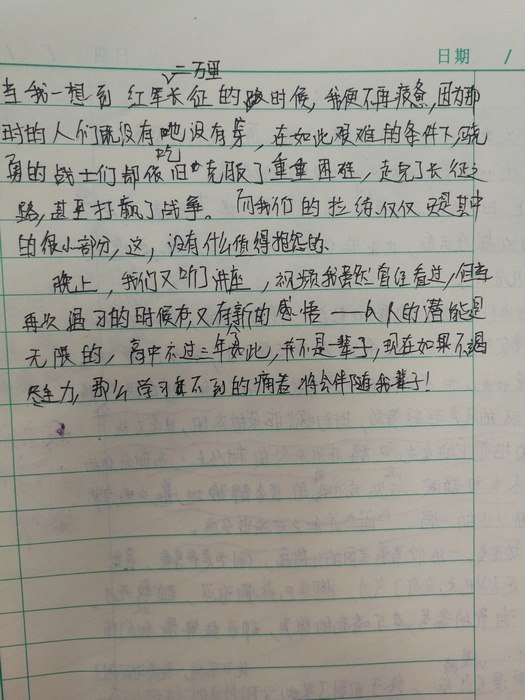 日期 /
二万里
当我一想到红军长征的时候，我便不再疲惫，因为那
时的人们既没有吃没有穿，在如此艰难的条件下，英
勇的战士们都依旧克服了重重困难，走完了长征之
路，甚至打赢了战争。而我们的拉练仅仅只是其中
的很小部分，这，没有什么值得抱怨的。
晚上，我们又听了讲座，视频我虽然曾经看过，但在
再次温习的时候存又有新的感悟——人的潜能是
无限的，高中不过三年如此，并不是一辈子，现在如果不竭
尽全力，那么学习其不到的痛苦将会伴随我一辈子！